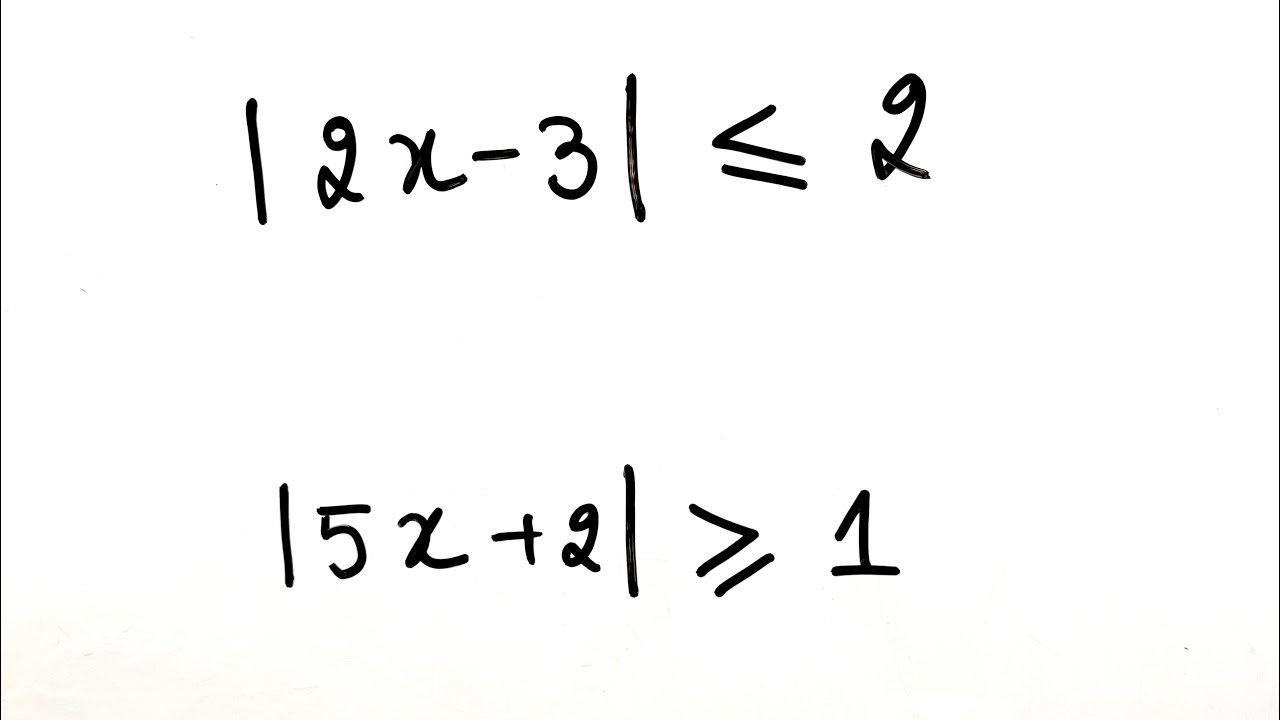 |2x-3| ≤ 2
|5x+2| ⩾ 1